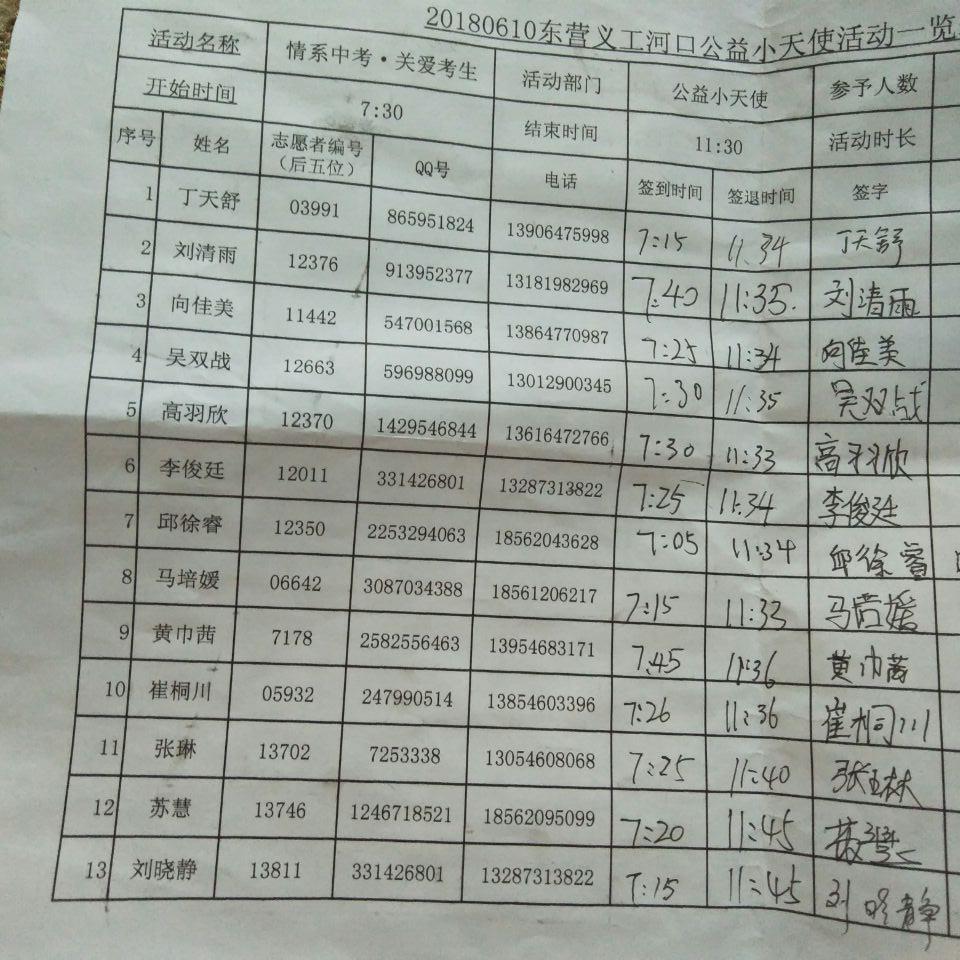 20180610东营义工河口公益小天使活动一览
活动名称 情系中考·关爱考生 活动部门 公益小天使 参予人数
开始时间 7:30 结束时间 11:30 活动时长
序号 姓名 志愿者编号（后五位） QQ号 电话 签到时间 签退时间 签字
1 丁天舒 03991 865951824 13906475998 7:15 11:34 丁天舒
2 刘清雨 12376 913952377 13181982969 7:40 11:35. 刘清雨
3 向佳美 11442 547001568 13864770987 7:25 11:34 向佳美
4 吴双战 12663 596988099 13012900345 7:30 11:35 吴双战
5 高羽欣 12370 1429546844 13616472766 7:30 11:33 高羽欣
6 李俊廷 12011 331426801 13287313822 7:25 11:34 李俊廷
7 邱徐睿 12350 2253294063 18562043628 7:05 11:34 邱徐睿
8 马培媛 06642 3087034388 18561206217 7:15 11:33 马培媛
9 黄巾茜 7178 2582556463 13954683171 7:45 11:36 黄巾茜
10 崔桐川 05932 247990514 13854603396 7:26 11:36 崔桐川
11 张琳 13702 7253338 13054608068 7:25 11:40 张琳
12 苏慧 13746 1246718521 18562095099 7:20 11:45 苏慧
13 刘晓静 13811 331426801 13287313822 7:15 11:45 刘晓静